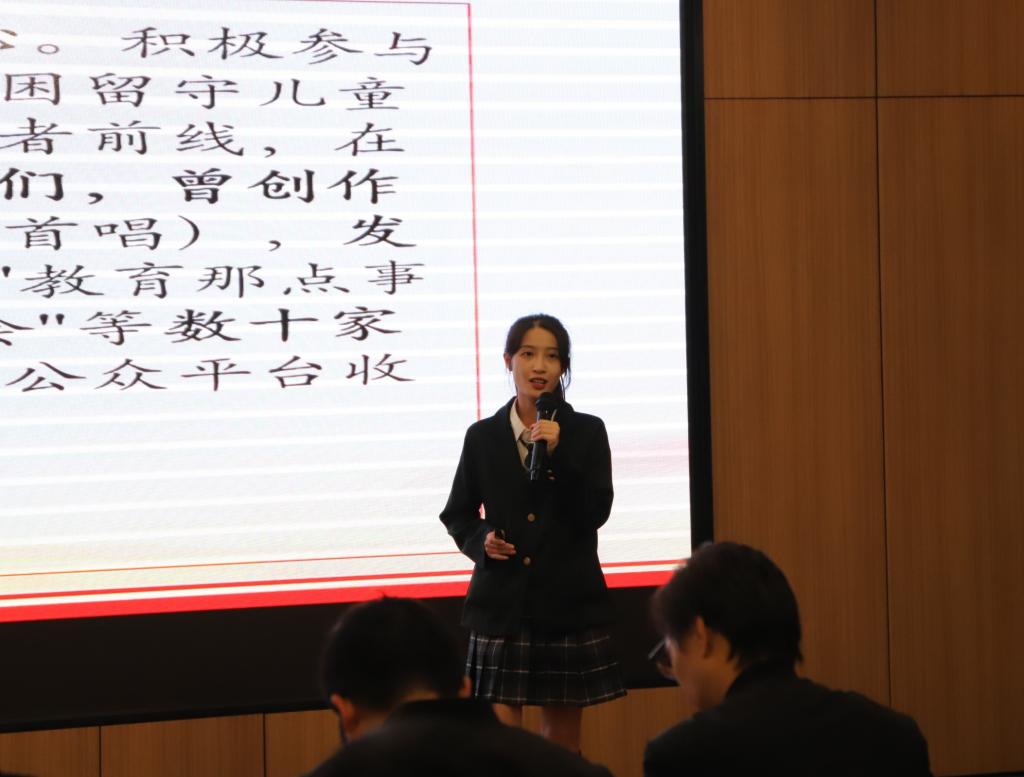 。积极参与
困留守儿童
者前线，在
们，曾创作
首唱），发
"教育那点事
"等数十家
公众平台收